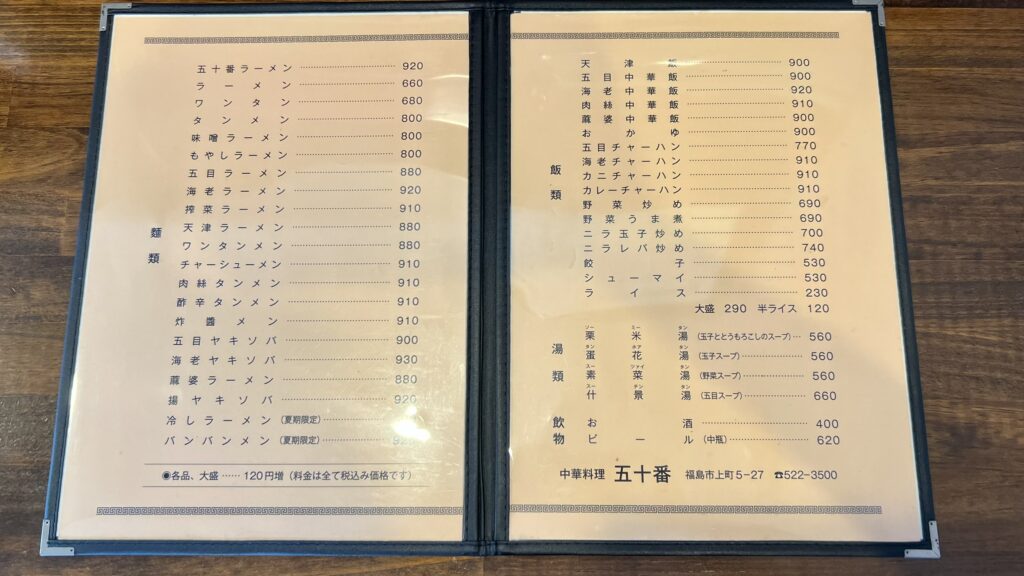 麵類
五十番ラーメン 920
ラーメン 660
ワンタン 680
タンメン 800
味噌ラーメン 800
もやしラーメン 800
五目ラーメン 880
海老ラーメン 920
搾菜ラーメン 910
天津ラーメン 880
ワンタンメン 880
チャーシューメン 910
肉絲タンメン 910
酢辛タンメン 910
炸醬メン 910
五目ヤキソバ 900
海老ヤキソバ 930
蔴婆ラーメン 880
揚ヤキソバ 920
冷しラーメン（夏期限定）
バンバンメン（夏期限定）
◉各品、大盛……120円増（料金は全て税込み価格です）
飯類
天津飯 900
五目中華飯 900
海老中華飯 920
肉絲中華飯 910
蔴婆中華飯 900
おかゆ 900
五目チャーハン 770
海老チャーハン 910
カニチャーハン 910
カレーチャーハン 910
野菜炒め 690
野菜うま煮 690
ニラ玉子炒め 700
ニラレバ炒め 740
餃子 530
シューマイ 530
ライス 230
大盛 290 半ライス 120
湯類
ソー ミー タン
粟米湯（玉子ととうもろこしのスープ）… 560
タン ホア タン
蛋花湯（玉子スープ） 560
スー ツァイ タン
素菜湯（野菜スープ） 560
スー チン タン
什景湯（五目スープ） 660
飲物
お酒 400
ビール（中瓶） 620
中華料理 五十番 福島市上町5－27 ☎522－3500